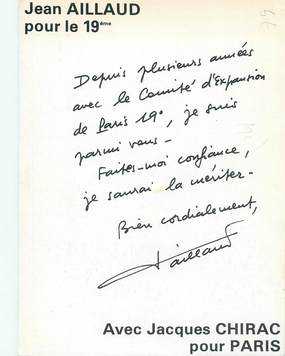 Jean AILLAUD
pour le 19ème
Depuis plusieurs années
avec le Comité d'Expansion
de Paris 19°, je suis
parmi vous -
Faites-moi confiance,
je saurai la mériter -
Bien cordialement,
JAillaud
Avec Jacques CHIRAC
pour PARIS